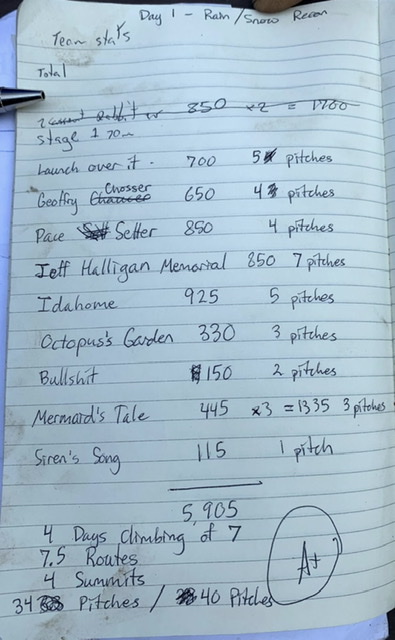 Day 1 - Rain / Snow Recon
Team stats
Total
850 x2 = 1700
Stage 1 70m
Launch over it - 700 5 pitches
Geoffry Chosser 650 4 pitches
Pace Setter 850 4 pitches
Jeff Halligan Memorial 850 7 pitches
Idahome 925 5 pitches
Octopus's Garden 330 3 pitches
Bullshit 150 2 pitches
Mermaid's Tale 445 x3 = 1335 3 pitches
Siren's Song 115 1 pitch
5,905
4 Days Climbing of 7
7.5 Routes
4 Summits
34 Pitches / 40 Pitches
A+